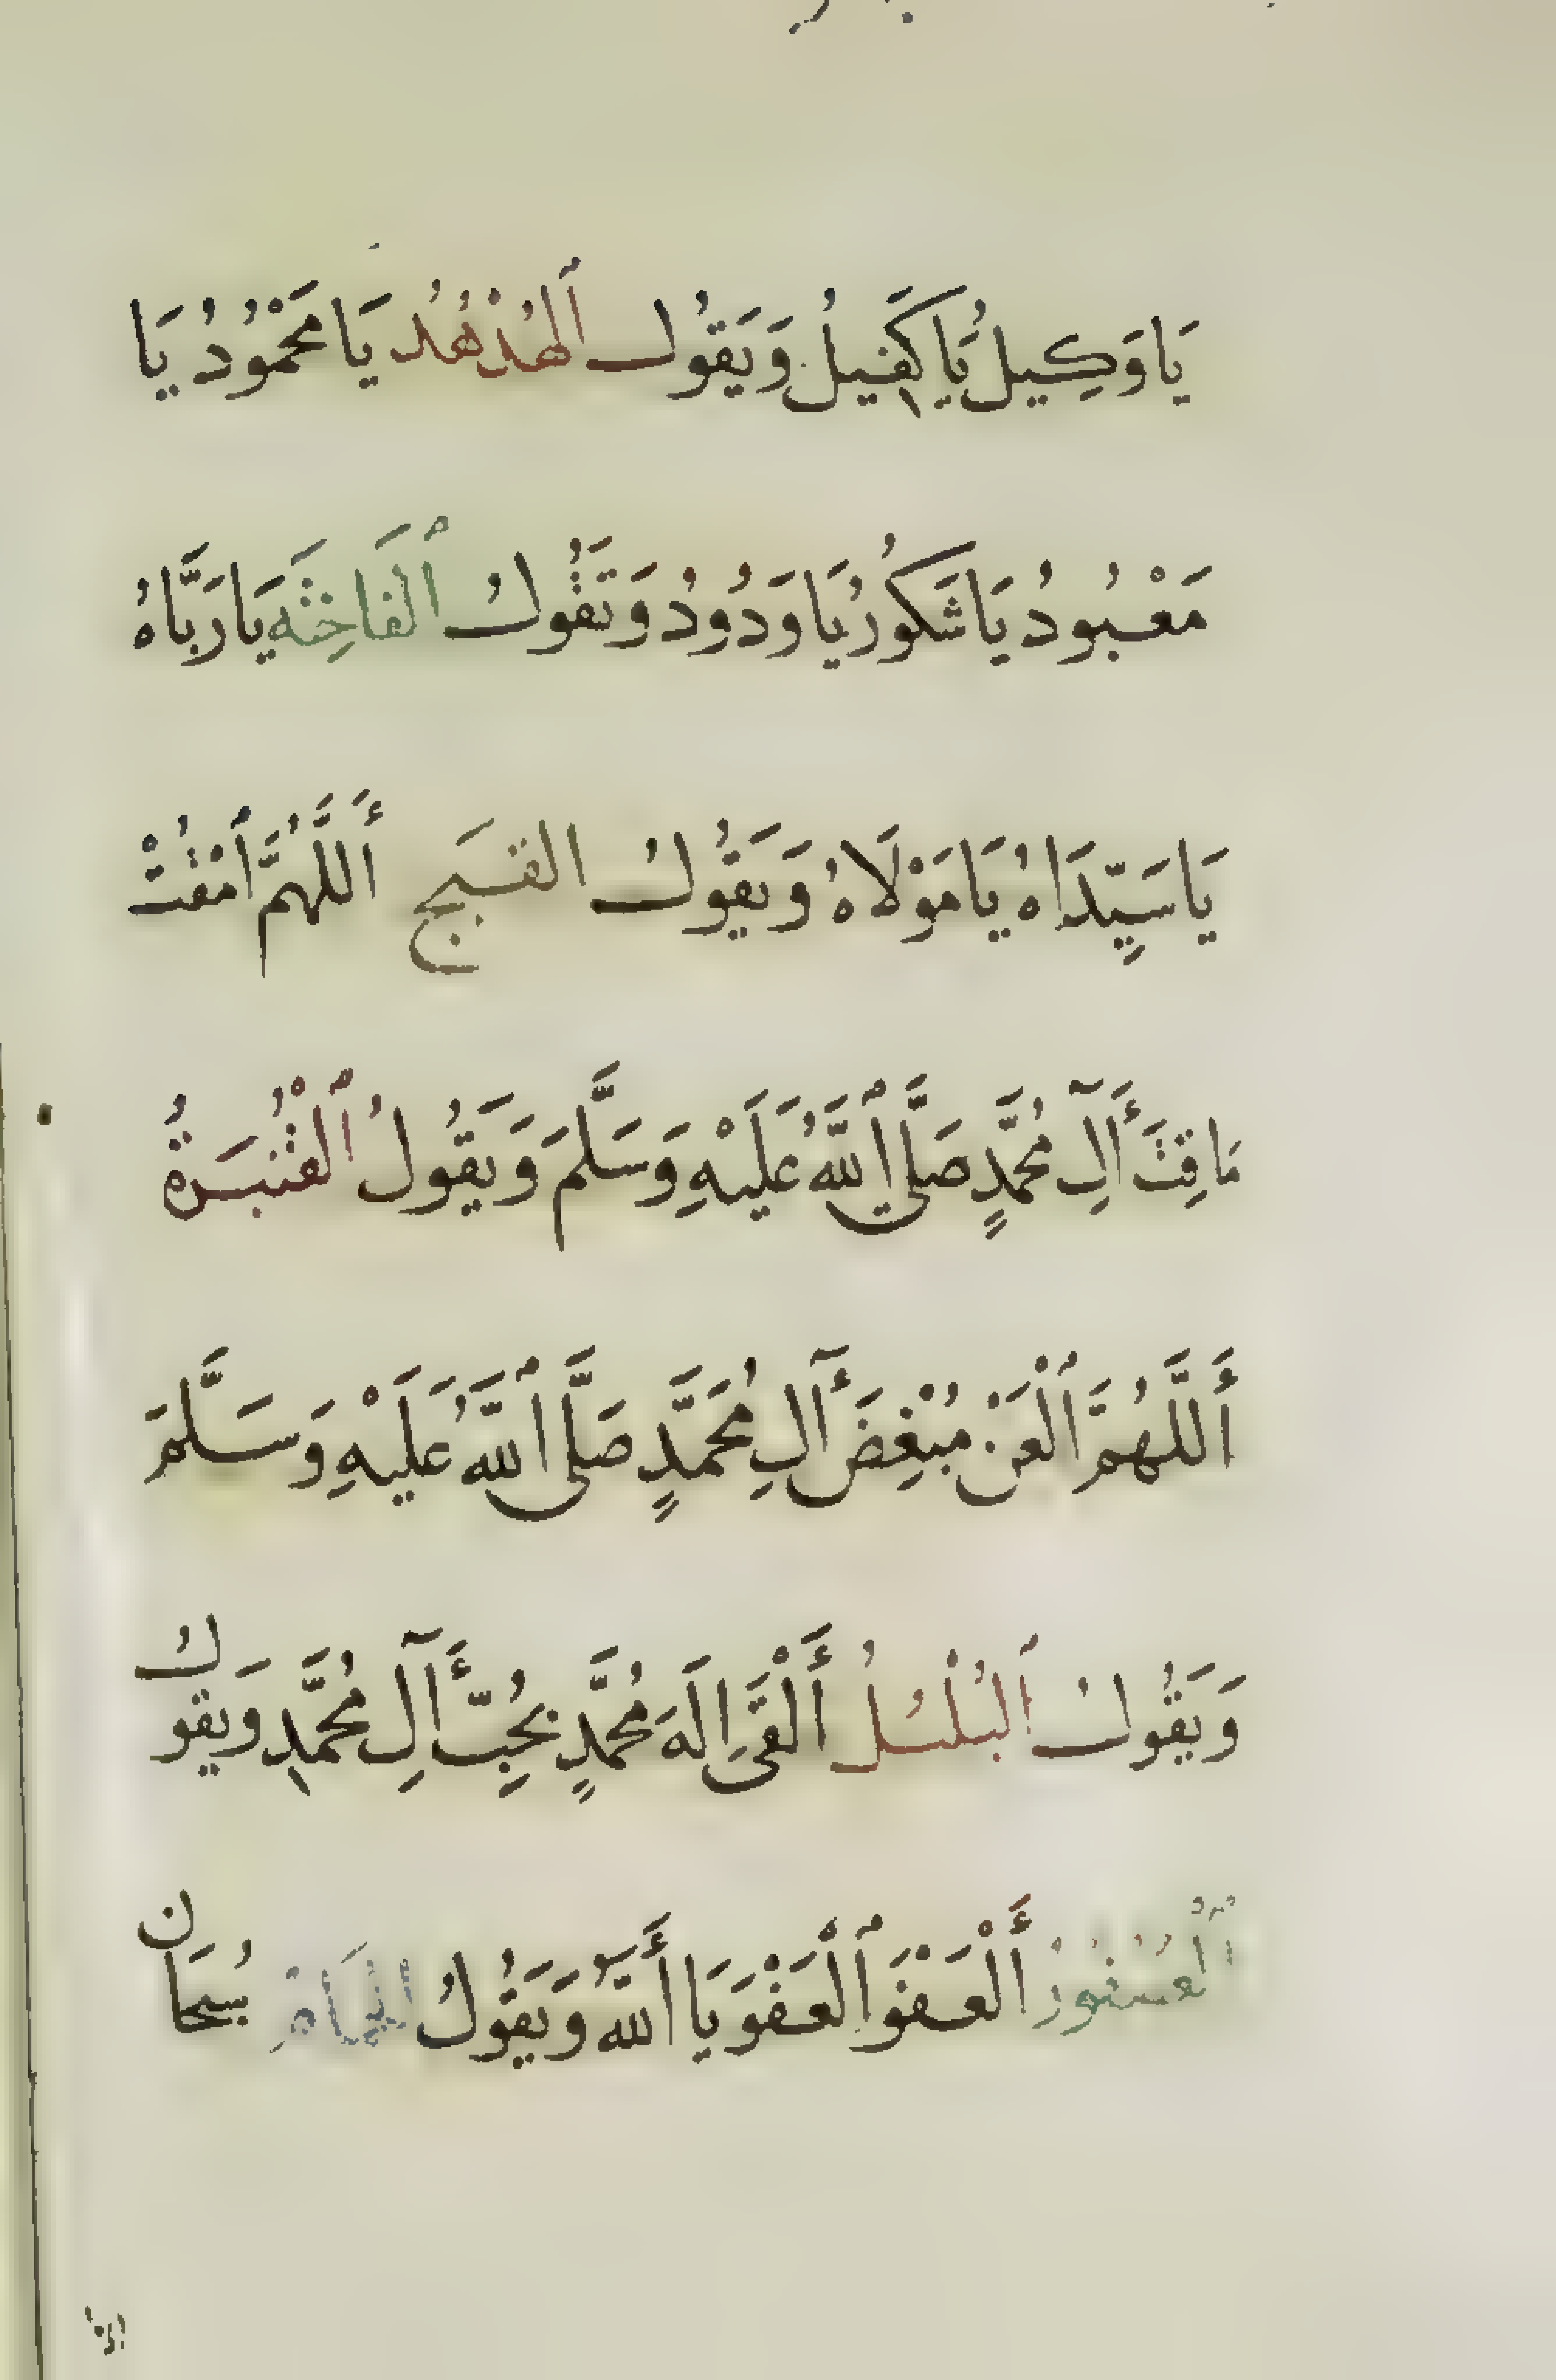 يَا وَكِيلُ يَا كَفِيلُ وَيَقُول ٱلهُدْهُد يَا مَحْمُودُ يَا
مَعْبُودُ يَا شَكُورُ يَا وَدُودُ وَتَقُولُ ٱلفَاخِتَه يَا رَبَّاهُ
يَا سَيِّدَاهُ يَا مَوْلَاهُ وَيَقُولُ القَبَج أَللَّهُمَّ ٱمْقُتْ
مَاقِتَ أَآلِ مُحَمَّدٍ صَلَّى ٱللَّهُ عَلَيْهِ وَسَلَّمَ وَيَقُولُ ٱلْقُنْبَرَةُ
أَللَّهُمَّ ٱلْعَنْ مُبْغِضَ أَآلِ مُحَمَّدٍ صَلَّى ٱللَّهُ عَلَيْهِ وَسَلَّمَ
وَيَقُولُ ٱلبُلْبُلُ أَلْقَىِ الَهَ مُحَمَّدٍ بُحِبَّ أَآلِ مُحَمَّدٍ وَيَقُولُ
ٱلْعُصْفُورُ أَلْعَفْوَ ٱلْعَفْوَ يَا أَللَّه وَيَقُولُ سُبْحَان